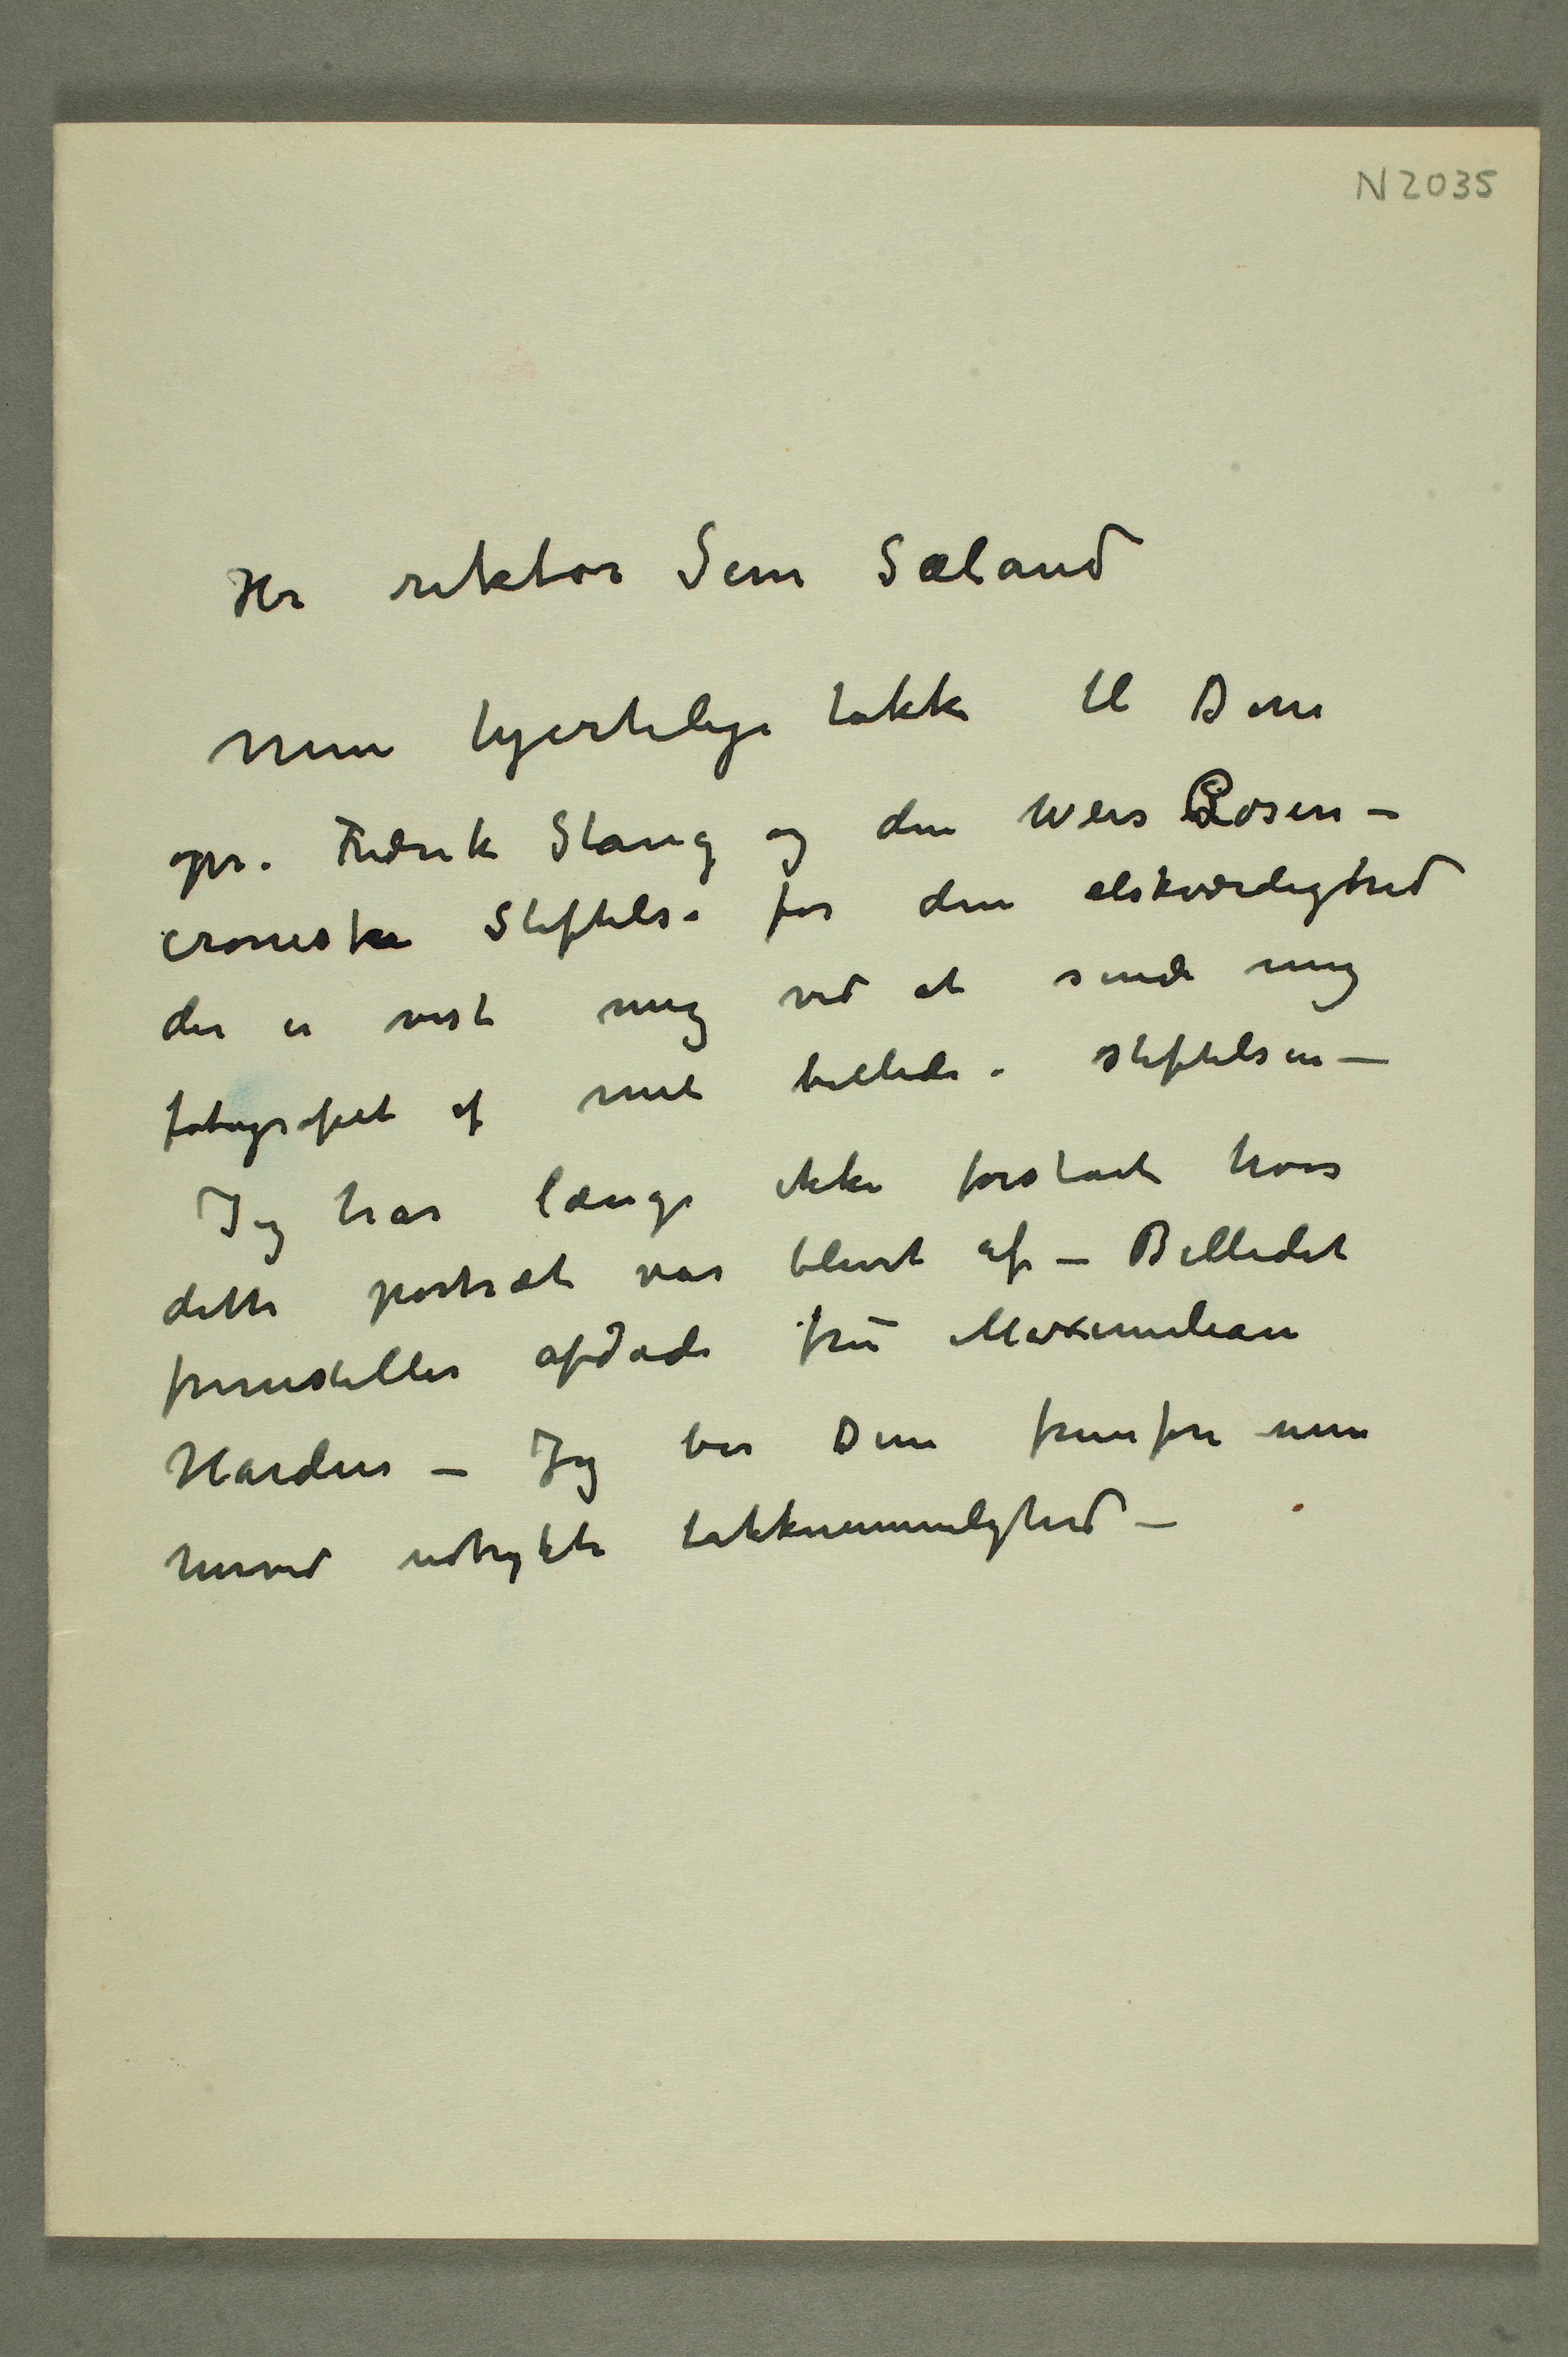 N 2035
Hr rektor Sem Sæland
Min hjertelige takk til Dem
opr. Fredrik Stang og den Weis Rosen-
croneske Stiftelse for den elskværdighed
der er vist mig ved at sende mig
fotografiet af mit billede i stiftelsen –
Jeg har længe ikke forstaat hvor
dette portræt var blevet af – Billedet
fremstiller afdøde fru Maximilian
Harden – Jeg ber Dem fremføre min
herved udtrykte takknemmelighed –